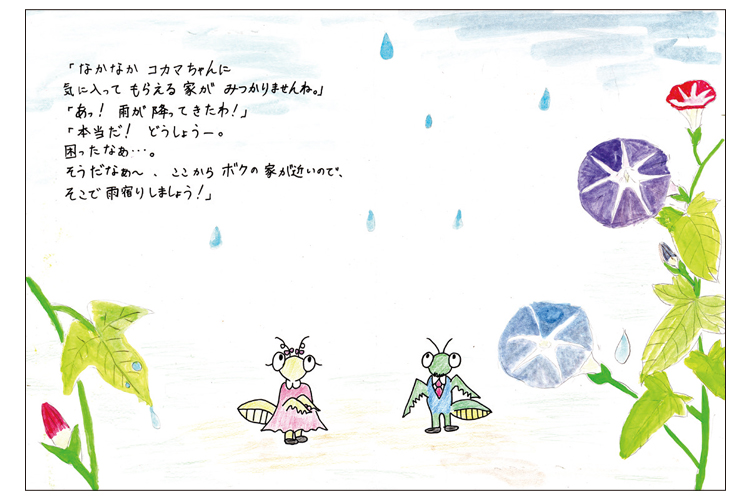 「なかなか コカマちゃんに
気に入って もらえる 家が みつかりませんね。」
「あっ！ 雨が 降ってきたわ！」
「本当だ！ どうしょうー。
困ったなぁ…。
そうだなぁ〜、ここから ボクの 家が近いので、
そこで 雨宿りしましょう！」